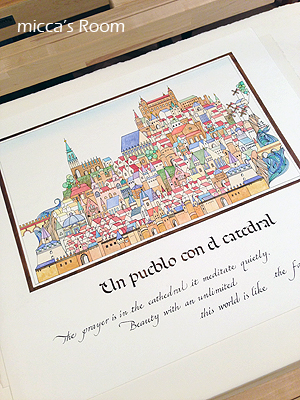 micca's Room
Un pueblo con el catedral
The prayer is in the cathedral it meditate quietly.
Beauty with an unlimited
this world is like the